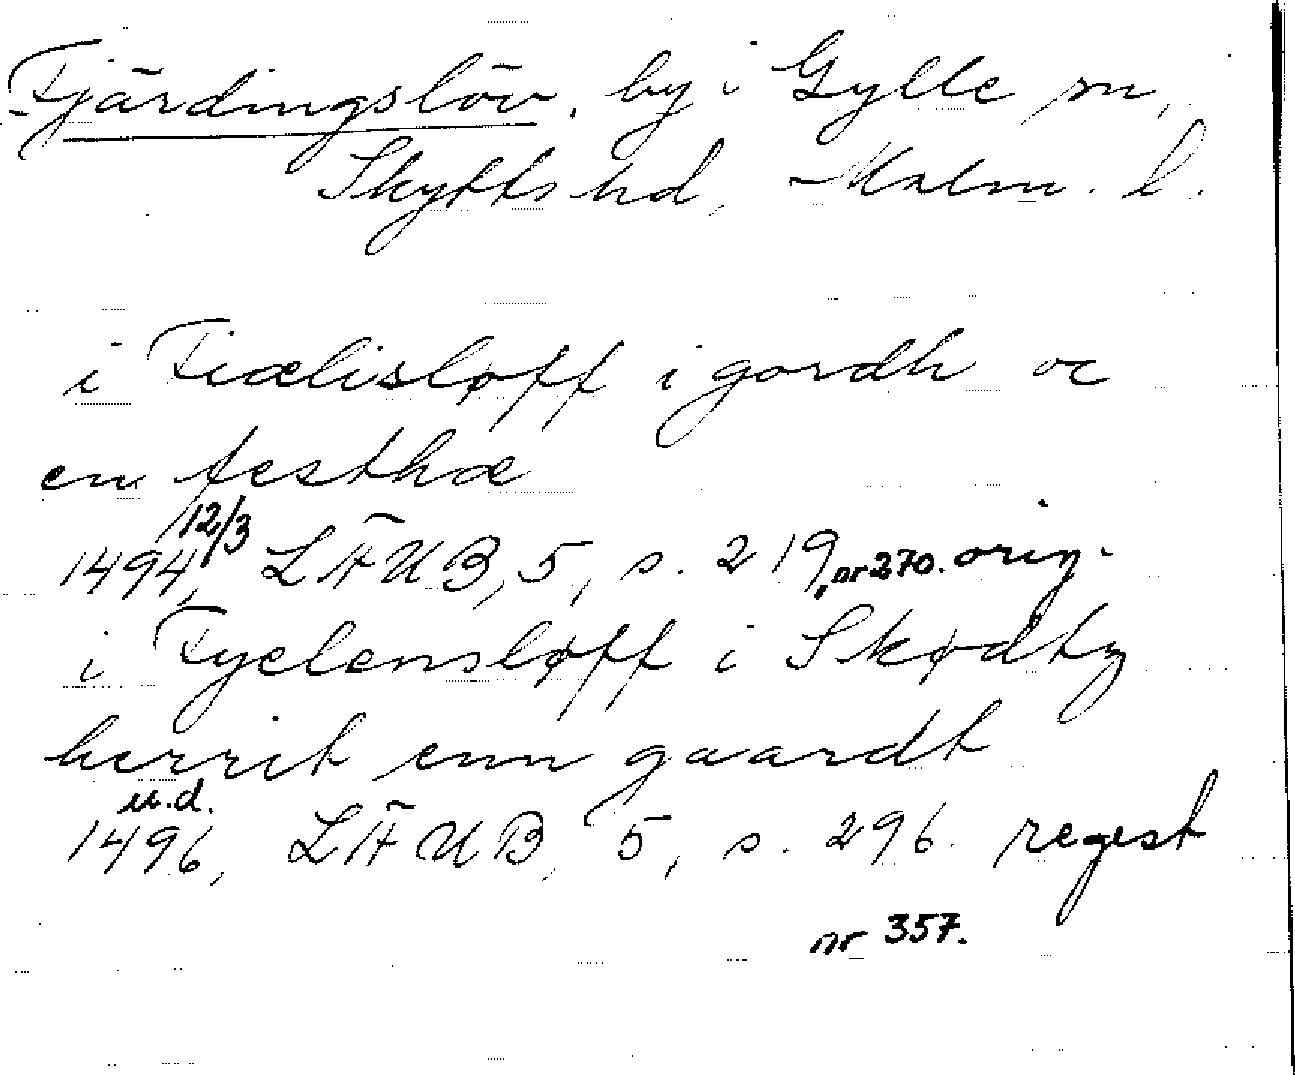 Fjärdingslöv, by i Gylle sn,
Skytts hd, Malm. l.
i Fiœlisløff i gordh oc
en festhœ
1494, 12/3 LÄUB, 5, s. 219, nr 270. orig.
i Fyelensløff i Skødty
herrit enn gaardt
u.d.
1496, LÄUB, 5, s. 296. regest
nr 357.